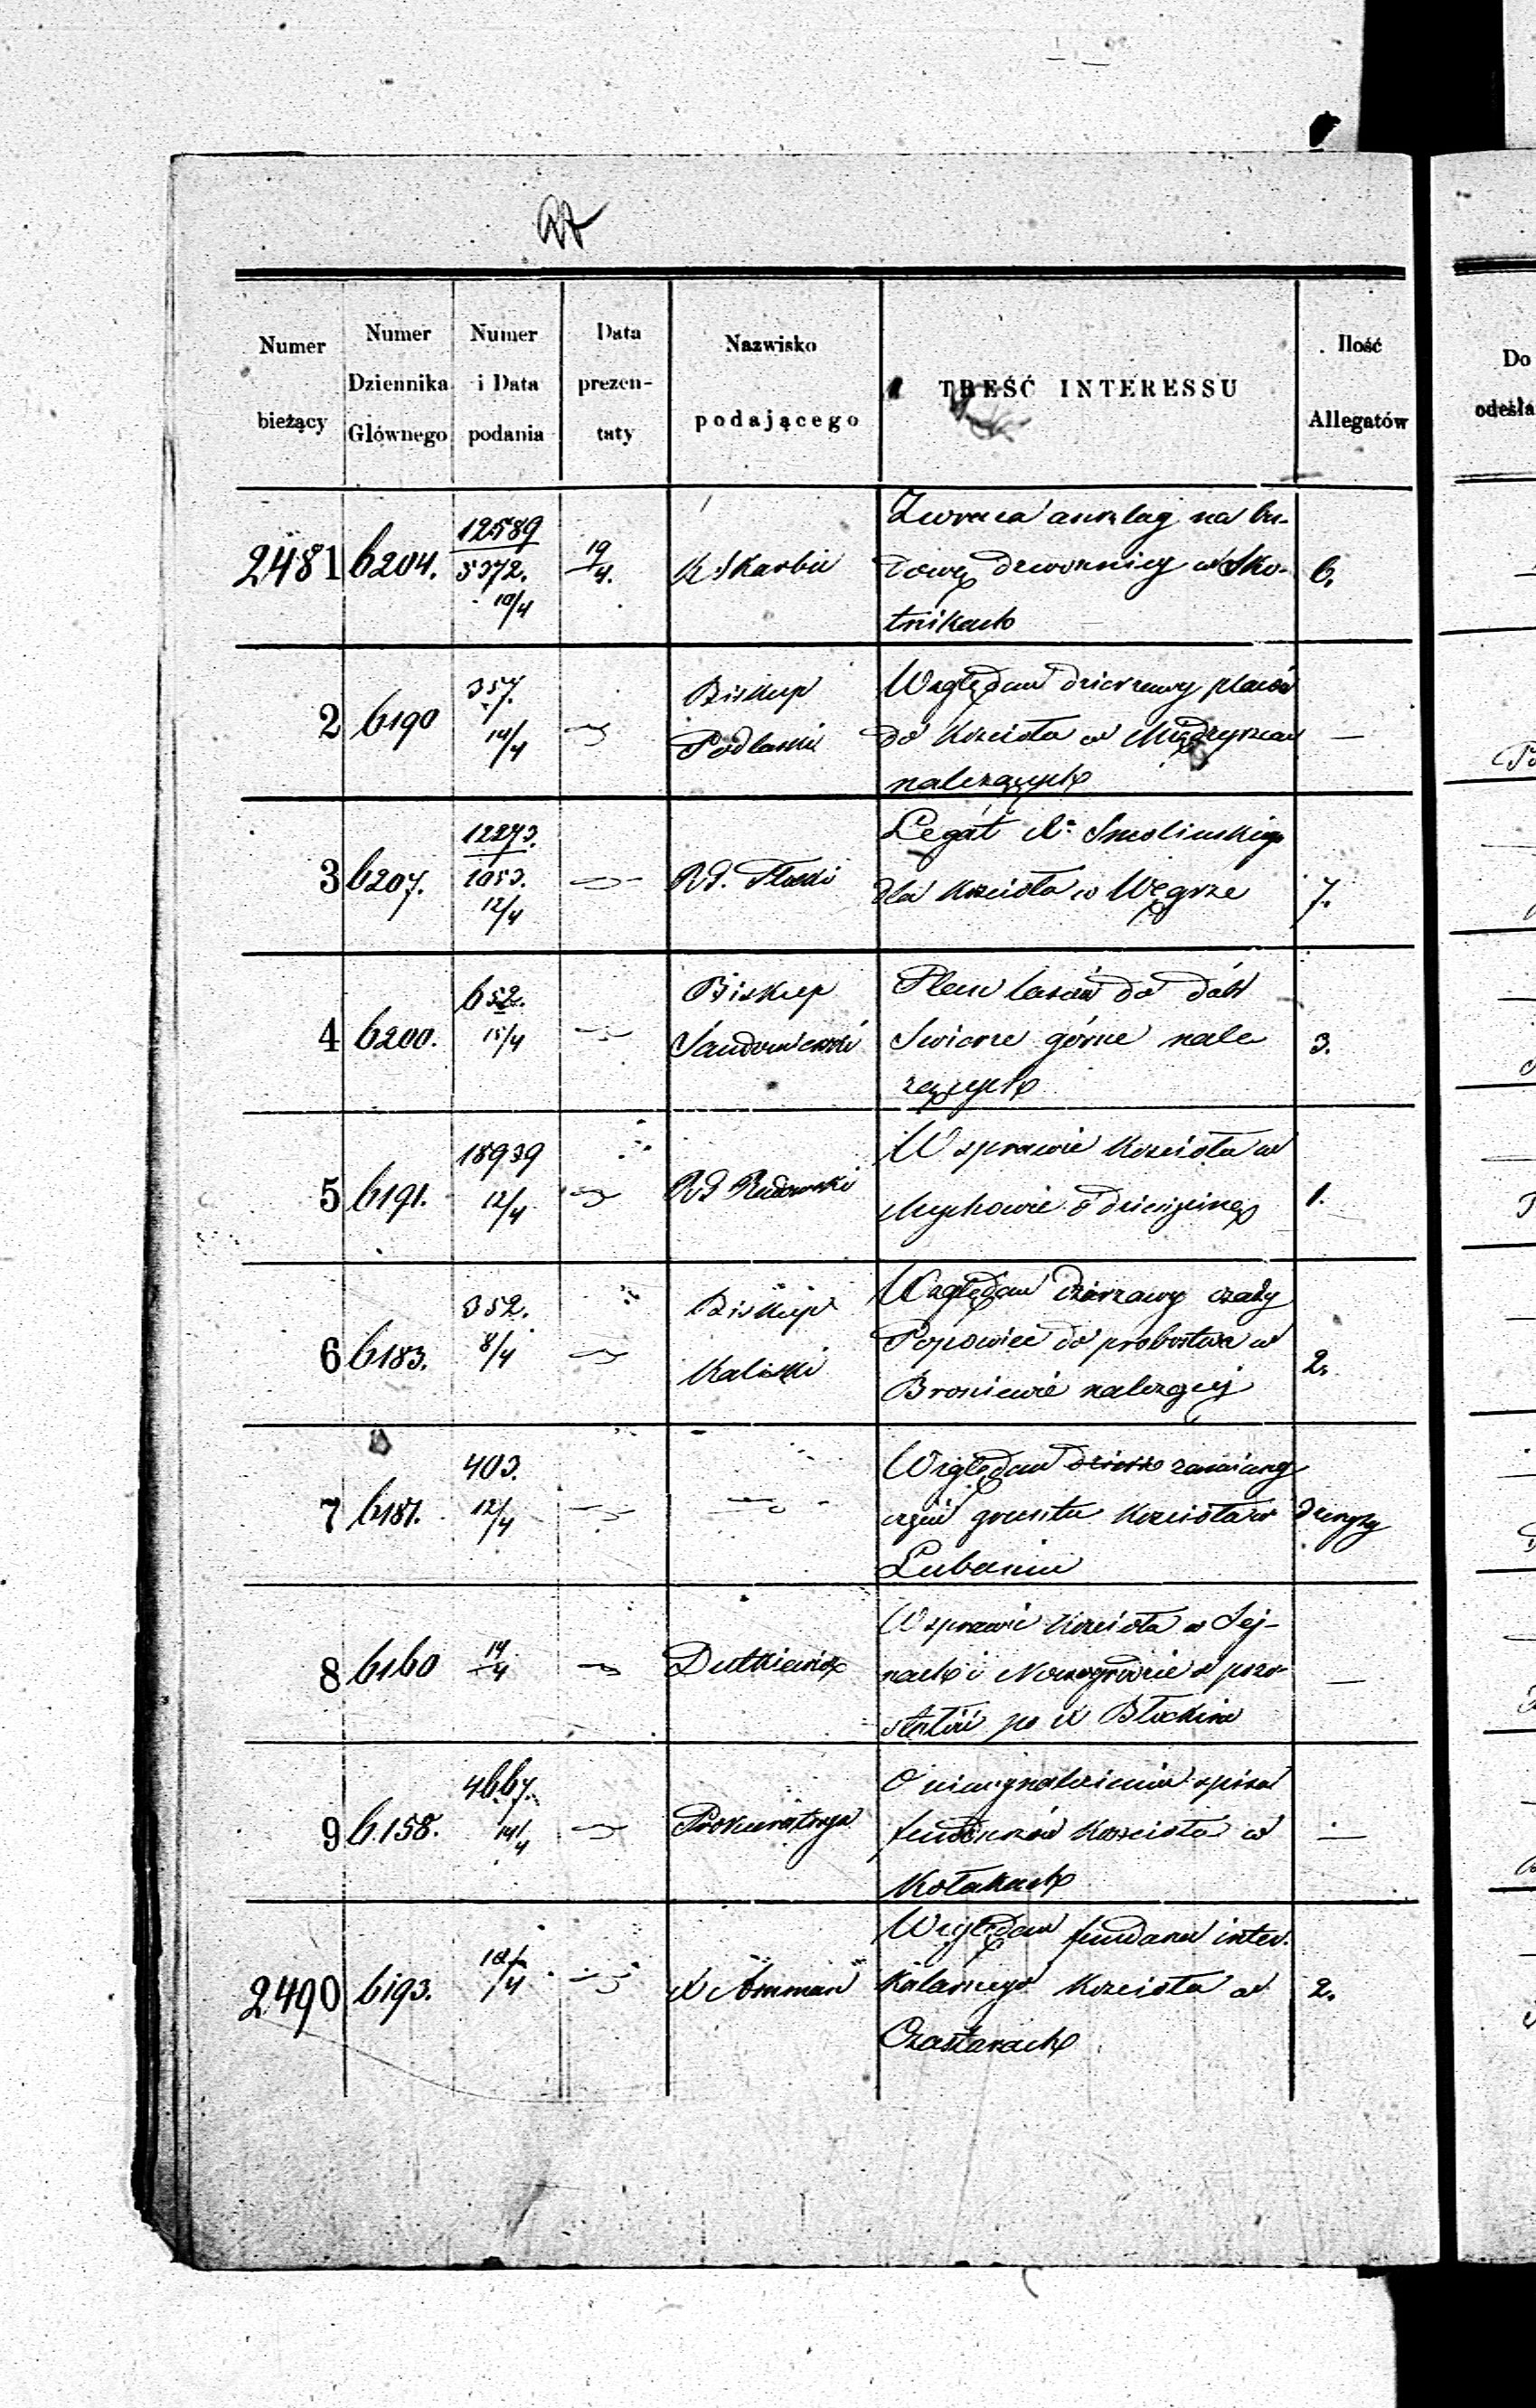 Numer bieżący | Numer Dziennika Głównego | Numer i Data podania | Data prezen-taty | Nazwisko podającego | TREŚĆ INTERESSU | Ilość Allegatów
Do
odesła
2481 | 6204. | 12589 / 5372. 10/4 | 19/4. | K Skarbu | Zwraca anszlag na bu-
dowę dzwonnicy w Sko-
tnikach | 6.
2 | 6190 | 357. 14/4 | Biskup Podlaski | Względem dzierzawy placów
do Kościoła w Międzyrzecu
należących | —
3 | 6207. | 12273. / 1053. 12/4 | RG. Płocki | Legat Xa Smolinskiego
dla Kościoła w Węgrze | 7.
4 | 6200. | 652. 15/4 | Biskup Sandomierski | Plan lasów do dóbr
Swierze górne nale
zących | 3.
5 | 6191. | 18939 12/4 | RG Radomski | W sprawie Kościoła w
Mychowie o dziesięcinę | 1.
6 | 6183. | 352. 8/4 | Biskup Kaliski | Względem dzierzawy
Popowice do probostwa w
Broniewie należącej | 2.
7 | 6181. | 403. 12/4 | Względem zamiany
części gruntu Kościoła w
Lubaniu
8 | 6160 | 14/4 | Dutkiewicz | W sprawie Kościoła w Sej-
nach i Nowogrodzie o pozo-
stałość po X Błockim | —
9 | 6158. | 4667. 14/4 | Prokuratorya | O
funduszów Kościoła w
Kołakach | —
2490 | 6193. | /4 | X Amman | Względem funduszu inter.
Kalarnego Kościoła w
Czastarach | 2.